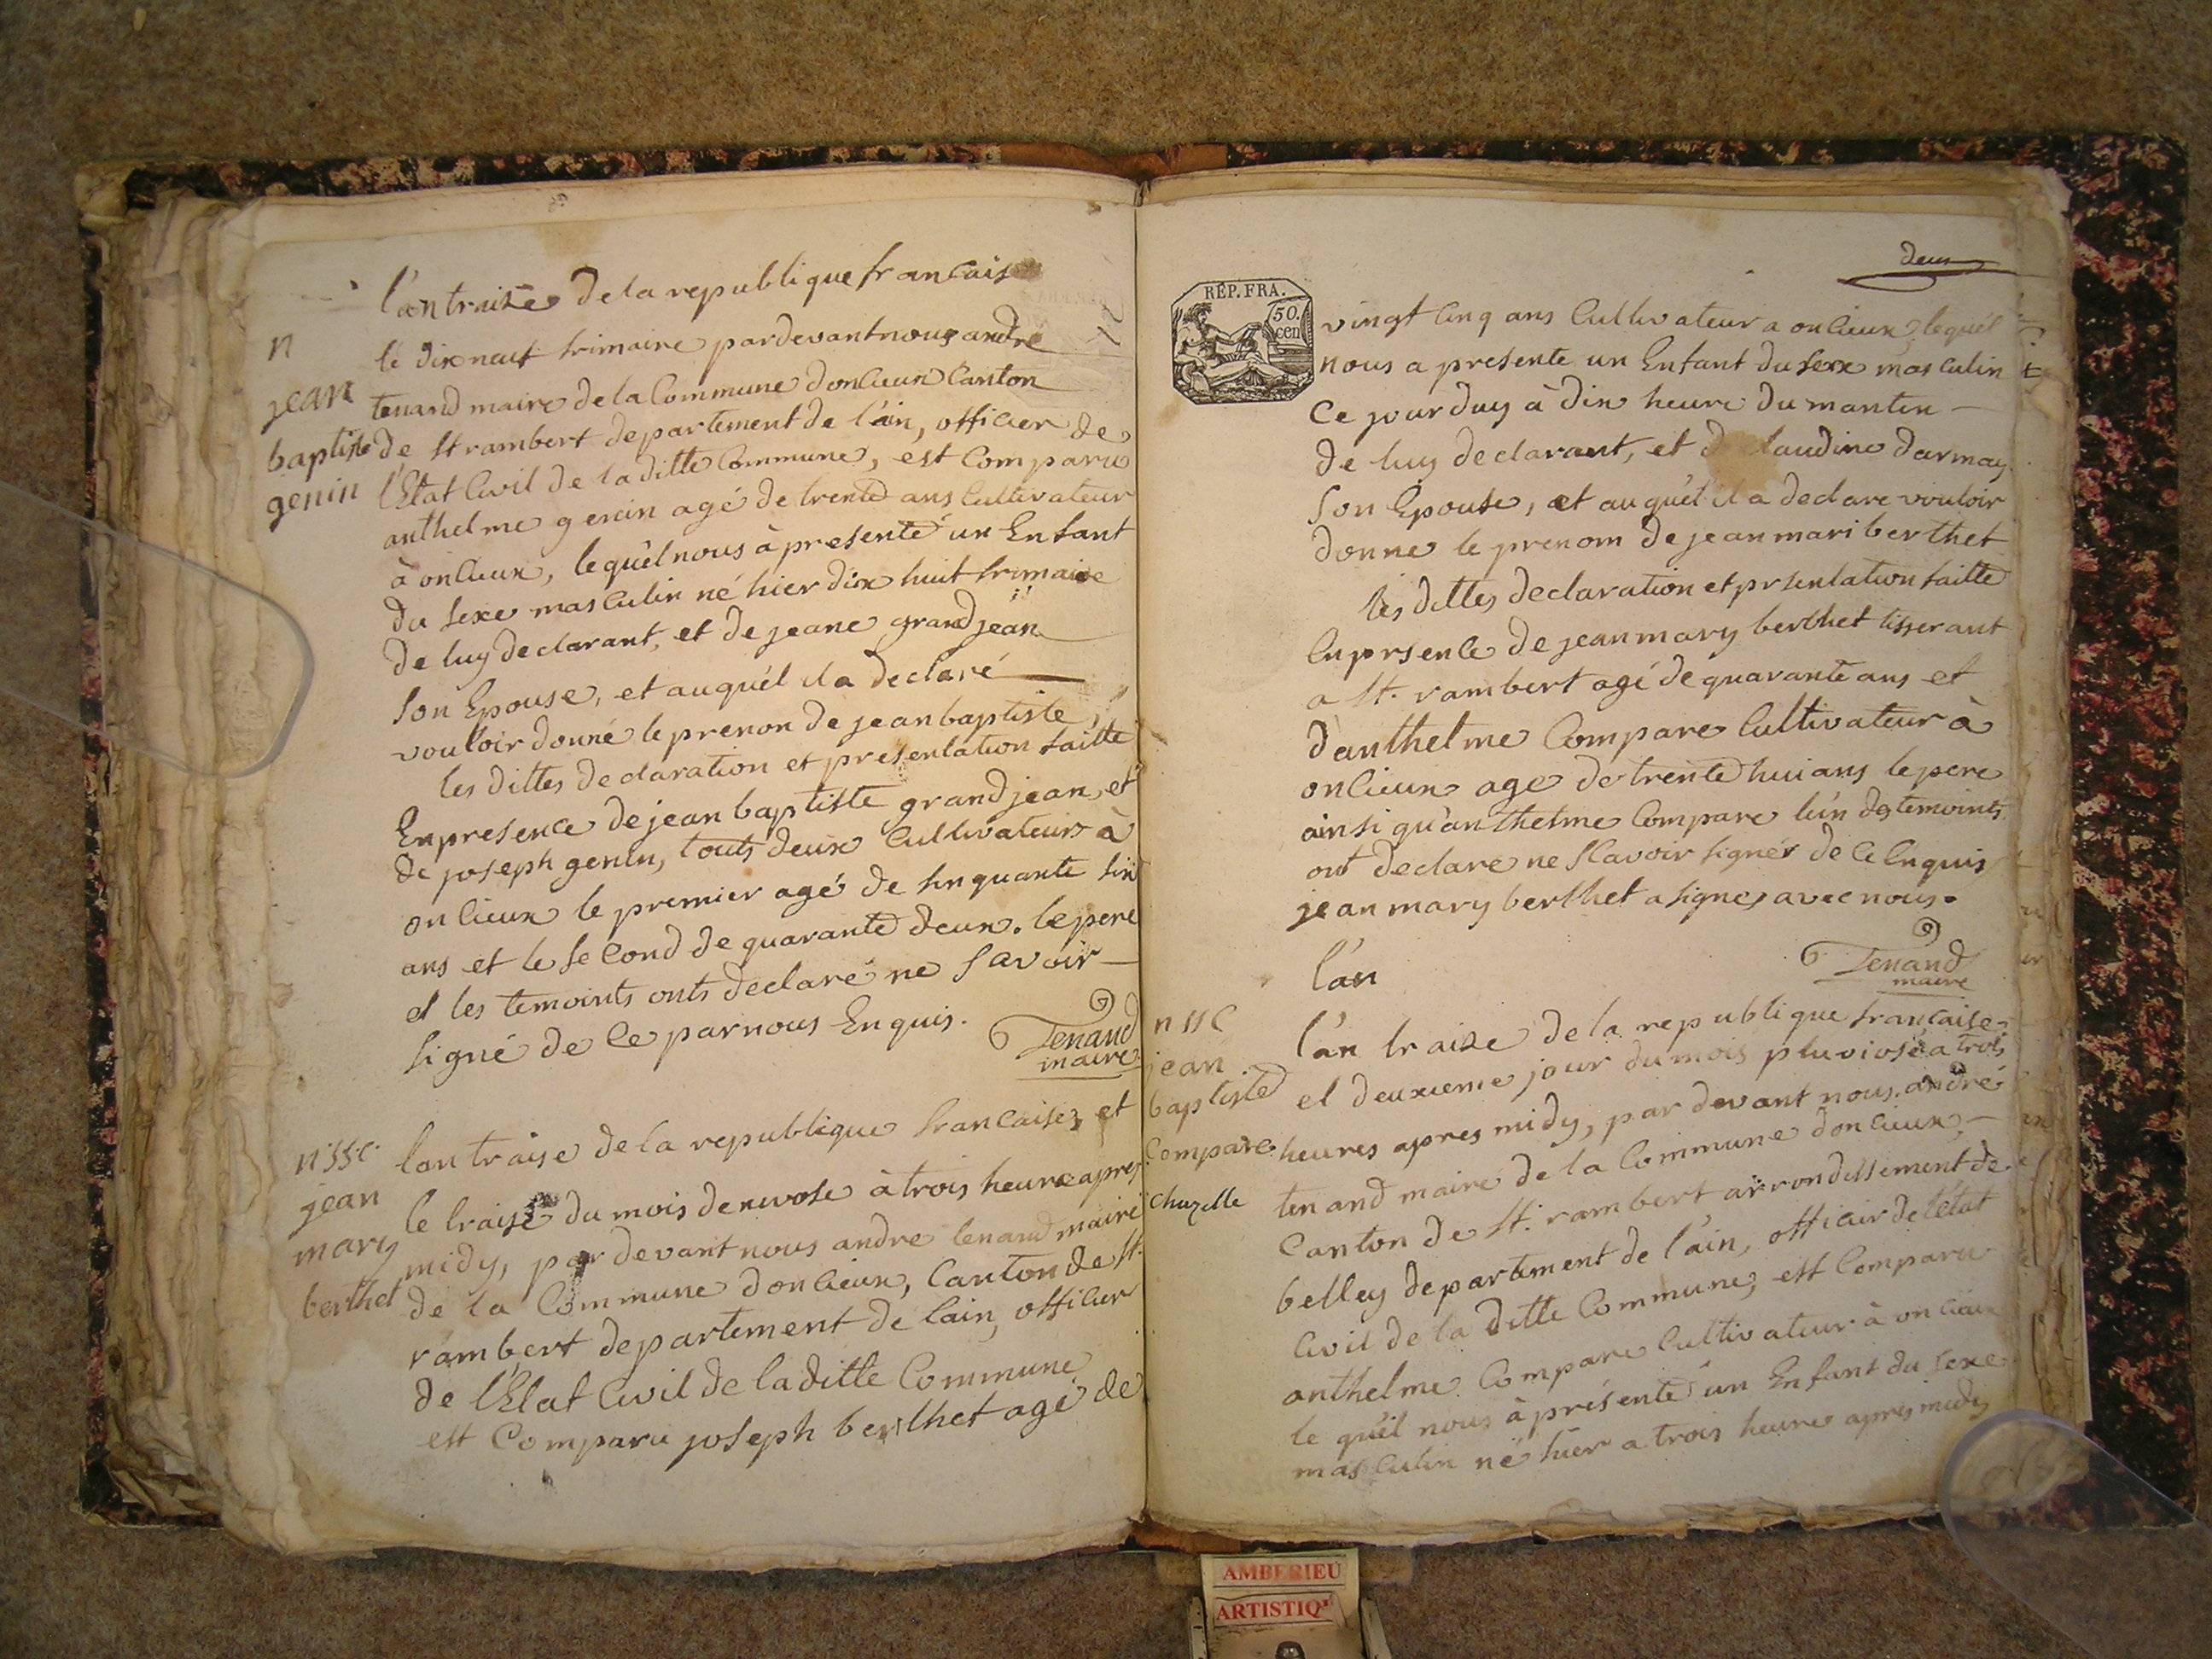 l'an traize de la republique francaise
le dix neuf frimaire par devant nous andre
tenand maire de la Commune donlieux Canton
de st rambert departement de l'ain, officier de
l'Etat Civil de la ditte Commune, est Comparu
anthelme genin agé de trente ans Cultivateur
à onlieux, lequél nous à presenté un Enfant
du sexe masculin né hier dix huit frimaire
de luy declarant, et de jeane grand jean
son Epouse, et auquél il a declaré
vouloir donné le prenon de jean baptiste,
les dittes declaration et presentation faitte
En presence de jean baptiste grand jean, et
de joseph genin, touts deux Cultivateurs à
onlieux le premier agé de sinquante sin
ans et le second de quarante deux. le pere
et les temoints onts declaré ne savoir
signé de Ce par nous Enquis.
Tenand
maire
n
jean
baptiste
genin
n'ssc
jean
mary
berthet
lan traise de la republique francaise, et
le traise du mois de nivose à trois heure apres
midy, par devant nous andre tenand maire
de la Commune donlieux, Canton de st.
rambert departement de lain, officier
de l'Etat Civil de la ditte Commune
est Comparu joseph berthet agé de
deux
RÉP. FRA.
50.
cen
vingt Cinq ans Cultivateur a onlieux, lequél
nous a presente un Enfant du sexe masculin
Ce jourduy à dix heure du mantin
de luy declarant, et de Claudine darmay
son Epouse, et auquél il a declare vouloir
donne le prenom de jean mari berthet
les dittes declaration et prsentation faitte
En prsence de jean mary berthet tisserant
a st. rambert agé de quarante ans et
d'anthelme Compare Cultivateur à
onlieux age de trente hui ans le pere
ainsi qu'anthelme Compare l'ún des temoints
ont declare ne scavoir signér de Ce Enquis
jean mary berthet a signe, avec nous.
l'an
Tenand
maire
n ssc
jean
baptiste
Compare
Chuzelle
l'an traize de la republique francaise
et deuxieme jour du mois pluviose, a trois
heures apres midy, par devant nous andré
tenand maire de la Commune donlieux
Canton de st. rambert arrondissement de
belley departement de l'ain, officier de létat
Civil de la ditte Commune, est Comparu
anthelme Compare Cultivateur à onlieux
le quél nous à présenté un Enfant du sexe
masculin né hier a trois heure apres midy
AMBERIEU
ARTISTIQ